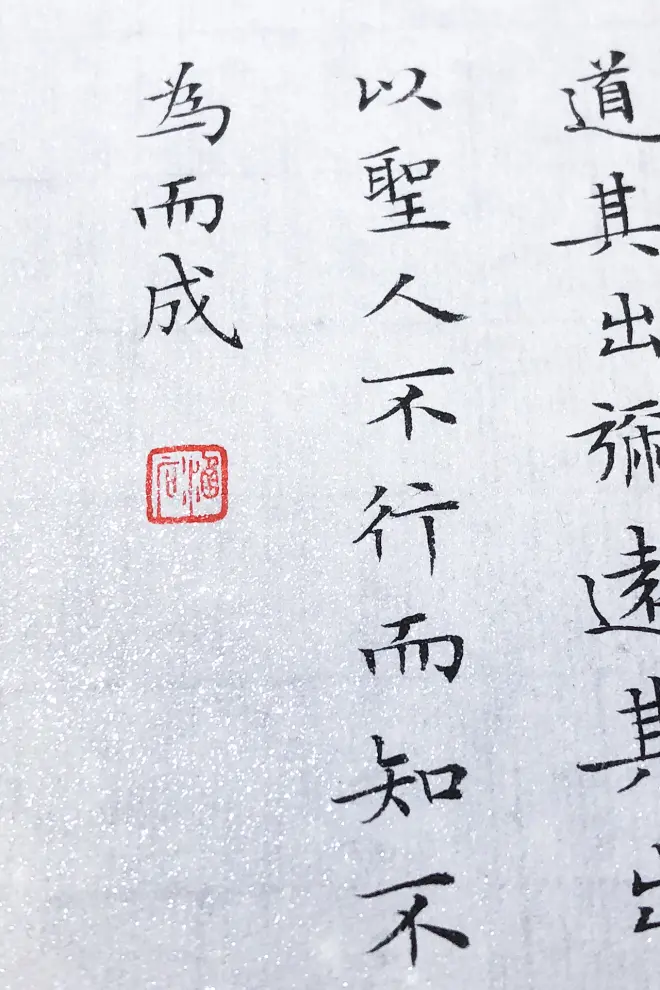 道其出彌遠其出
以聖人不行而知不
為而成